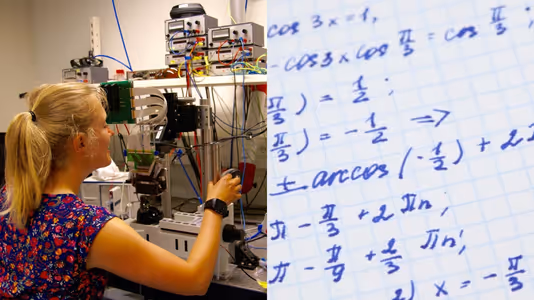 cos 3x = 1,
- cos 3x cos π/3 = cos π/3 ;
π/3 ) = 1/2 ;
π/3 ) = - 1/2 =>
± arccos (- 1/2) + 2
π - π/3 + 2πn;
π - π/9 + 2/3 πn;
2) x = - π/3